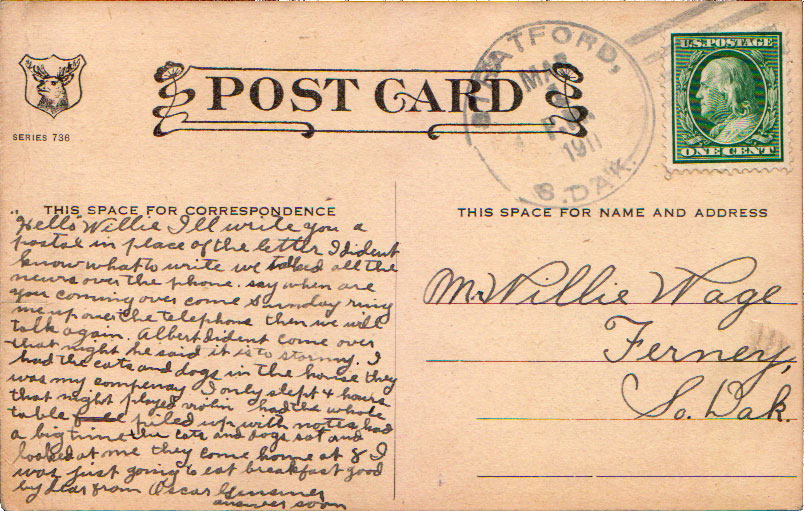 POST CARD
SERIES 736
STRATFORD,
MAR
P.M.
1911
S. DAK.
U.S. POSTAGE
ONE CENT
THIS SPACE FOR CORRESPONDENCE
"Hello" Willie I'll write you a
postal in place of the letter I dident
know what to write we talked all the
news over the phone. say when are
you coming over come Sunday ring
me up over the telephone then we will
talk again. Albert dident come over
that night he said it is to stormy. I
had the cats and dogs in the house they
was my compenay I only slept 4 hours
that night played violin had the whole
table full piled up with notes had
a big time the cats and dogs sat and
looked at me they come home at 8 I
was just going to eat breakfast good
by dear from Oscar
answer soon
THIS SPACE FOR NAME AND ADDRESS
Mr. Willie Wage
Ferney,
So. Dak.